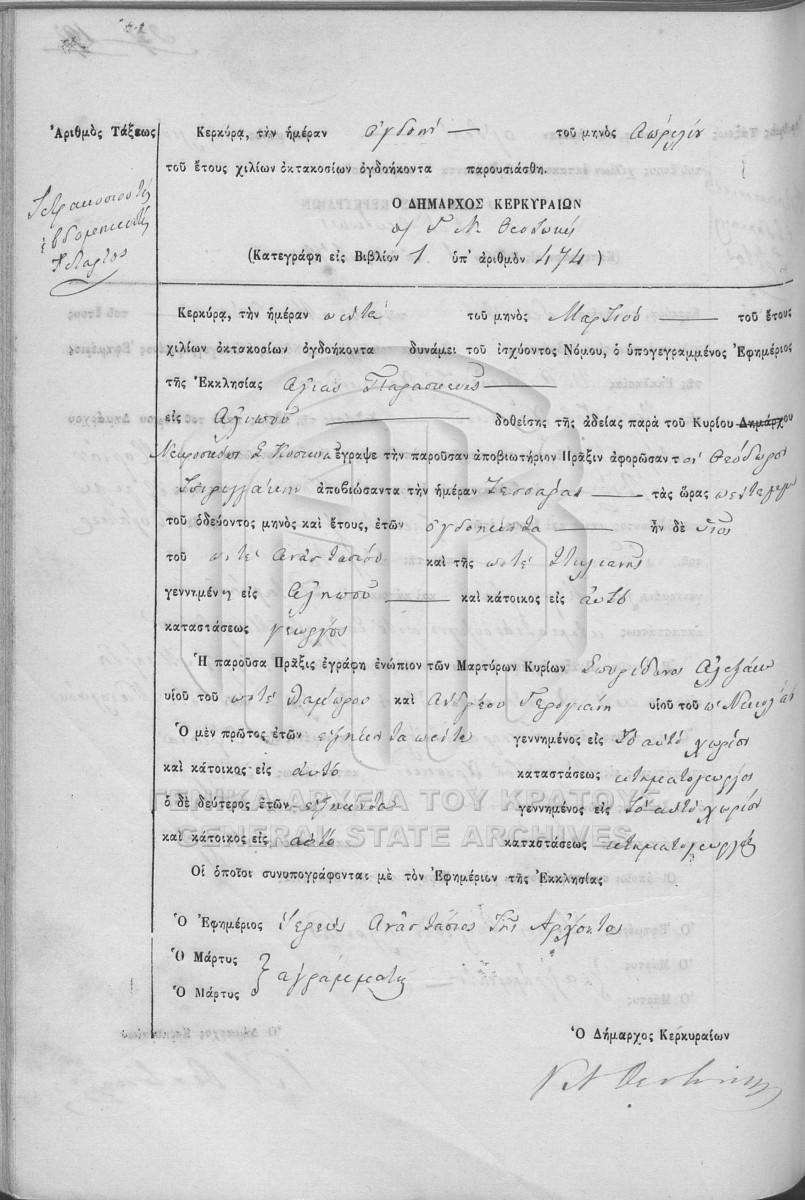 Ἀριθμὸς Τάξεως
Τετρακοσιοστὴ
ἑβδομηκοστὴ
τετάρτη
Κερκύρα, τὴν ἡμέραν ὀγδόη τοῦ μηνὸς Ἀπριλίου
τοῦ ἔτους χιλίων ὀκτακοσίων ὀγδοήκοντα παρουσιάσθη.
Ὁ ΔΗΜΑΡΧΟΣ ΚΕΡΚΥΡΑΙΩΝ
Θεοτόκης
(Κατεγράφη εἰς Βιβλίον 1 ὑπ' ἀριθμὸν 474)
Κερκύρα, τὴν ἡμέραν πέντε τοῦ μηνὸς Μαρτίου τοῦ ἔτους
χιλίων ὀκτακοσίων ὀγδοήκοντα δυνάμει τοῦ ἰσχύοντος Νόμου, ὁ ὑπογεγραμμένος Ἐφημέριος
τῆς Ἐκκλησίας Αγίας Παρασκευης
εἰς Αλιποῦ δοθείσης τῆς ἀδείας παρὰ τοῦ Κυρίου Δημάρχου
ἔγραψε τὴν παροῦσαν ἀποβιωτήριον Πρᾶξιν ἀφορῶσαν τὸν Θεόδωρον
ἀποβιώσαντα τὴν ἡμέραν τέσσαρας τὰς ὥρας
τοῦ ὁδεύοντος μηνὸς καὶ ἔτους, ἐτῶν ογδοηκοντα ἦν δὲ υἱος
τοῦ ποτέ Αναστασίου καὶ τῆς ποτέ Στιλιανης
γεννημένη εἰς Αληποῦ καὶ κάτοικος εἰς αυτό
καταστάσεως γεωργος
Ἡ παροῦσα Πρᾶξις ἐγράφη ἐνώπιον τῶν Μαρτύρων Κυρίων Σπυρίδωνος
υἱοῦ τοῦ ποτέ Λαμπρου καὶ Ανδρέου Γερογιανη υἱοῦ τοῦ π Νικολάου
Ὁ μὲν πρῶτος ἐτῶν εξηκοντα πεντε γεννημένος εἰς Το αυτό χωρίον
καὶ κάτοικος εἰς αυτό καταστάσεως κτηματογεωργος
ὁ δὲ δεύτερος ἐτῶν εξηκοντα γεννημένος εἰς Το αυτό χωρίον
καὶ κάτοικος εἰς αυτό καταστάσεως κτηματογεωργός
Οἱ ὁποῖοι συνυπογράφονται μὲ τὸν Ἐφημέριον τῆς Ἐκκλησίας
Ὁ Ἐφημέριος Ἱερεὺς Αναστάσιος Αρχοντας
Ὁ Μάρτυς
Ὁ Μάρτυς αγράμματη
Ὁ Δήμαρχος Κερκυραίων
ΓΕΝΙΚΑ ΑΡΧΕΙΑ ΤΟΥ ΚΡΑΤΟΥΣ
GENERAL STATE ARCHIVES